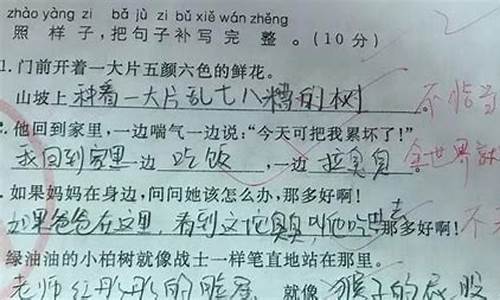 zhào yàng zi bǎ jù zi bǔ xiě wán zhěng
照样子,把句子补写完整。(10分)
1.门前开着一大片五颜六色的鲜花。
山坡上种着一大片乱七八糟的树。不恰当
他回到家里,一边喘气一边说:“今天可把我累坏了!”
我回到家里一边吃饭,一边拉臭臭。全世界就
.如果妈妈在身边,问问她该怎么办,那多好啊!
如果爸爸在这里,看到这坨臭臭叫他吃去那多好啊!不
绿油油的小柏树就像战士一样笔直地站在那里。
老师红彤彤的脸蛋就像猴子的屁股